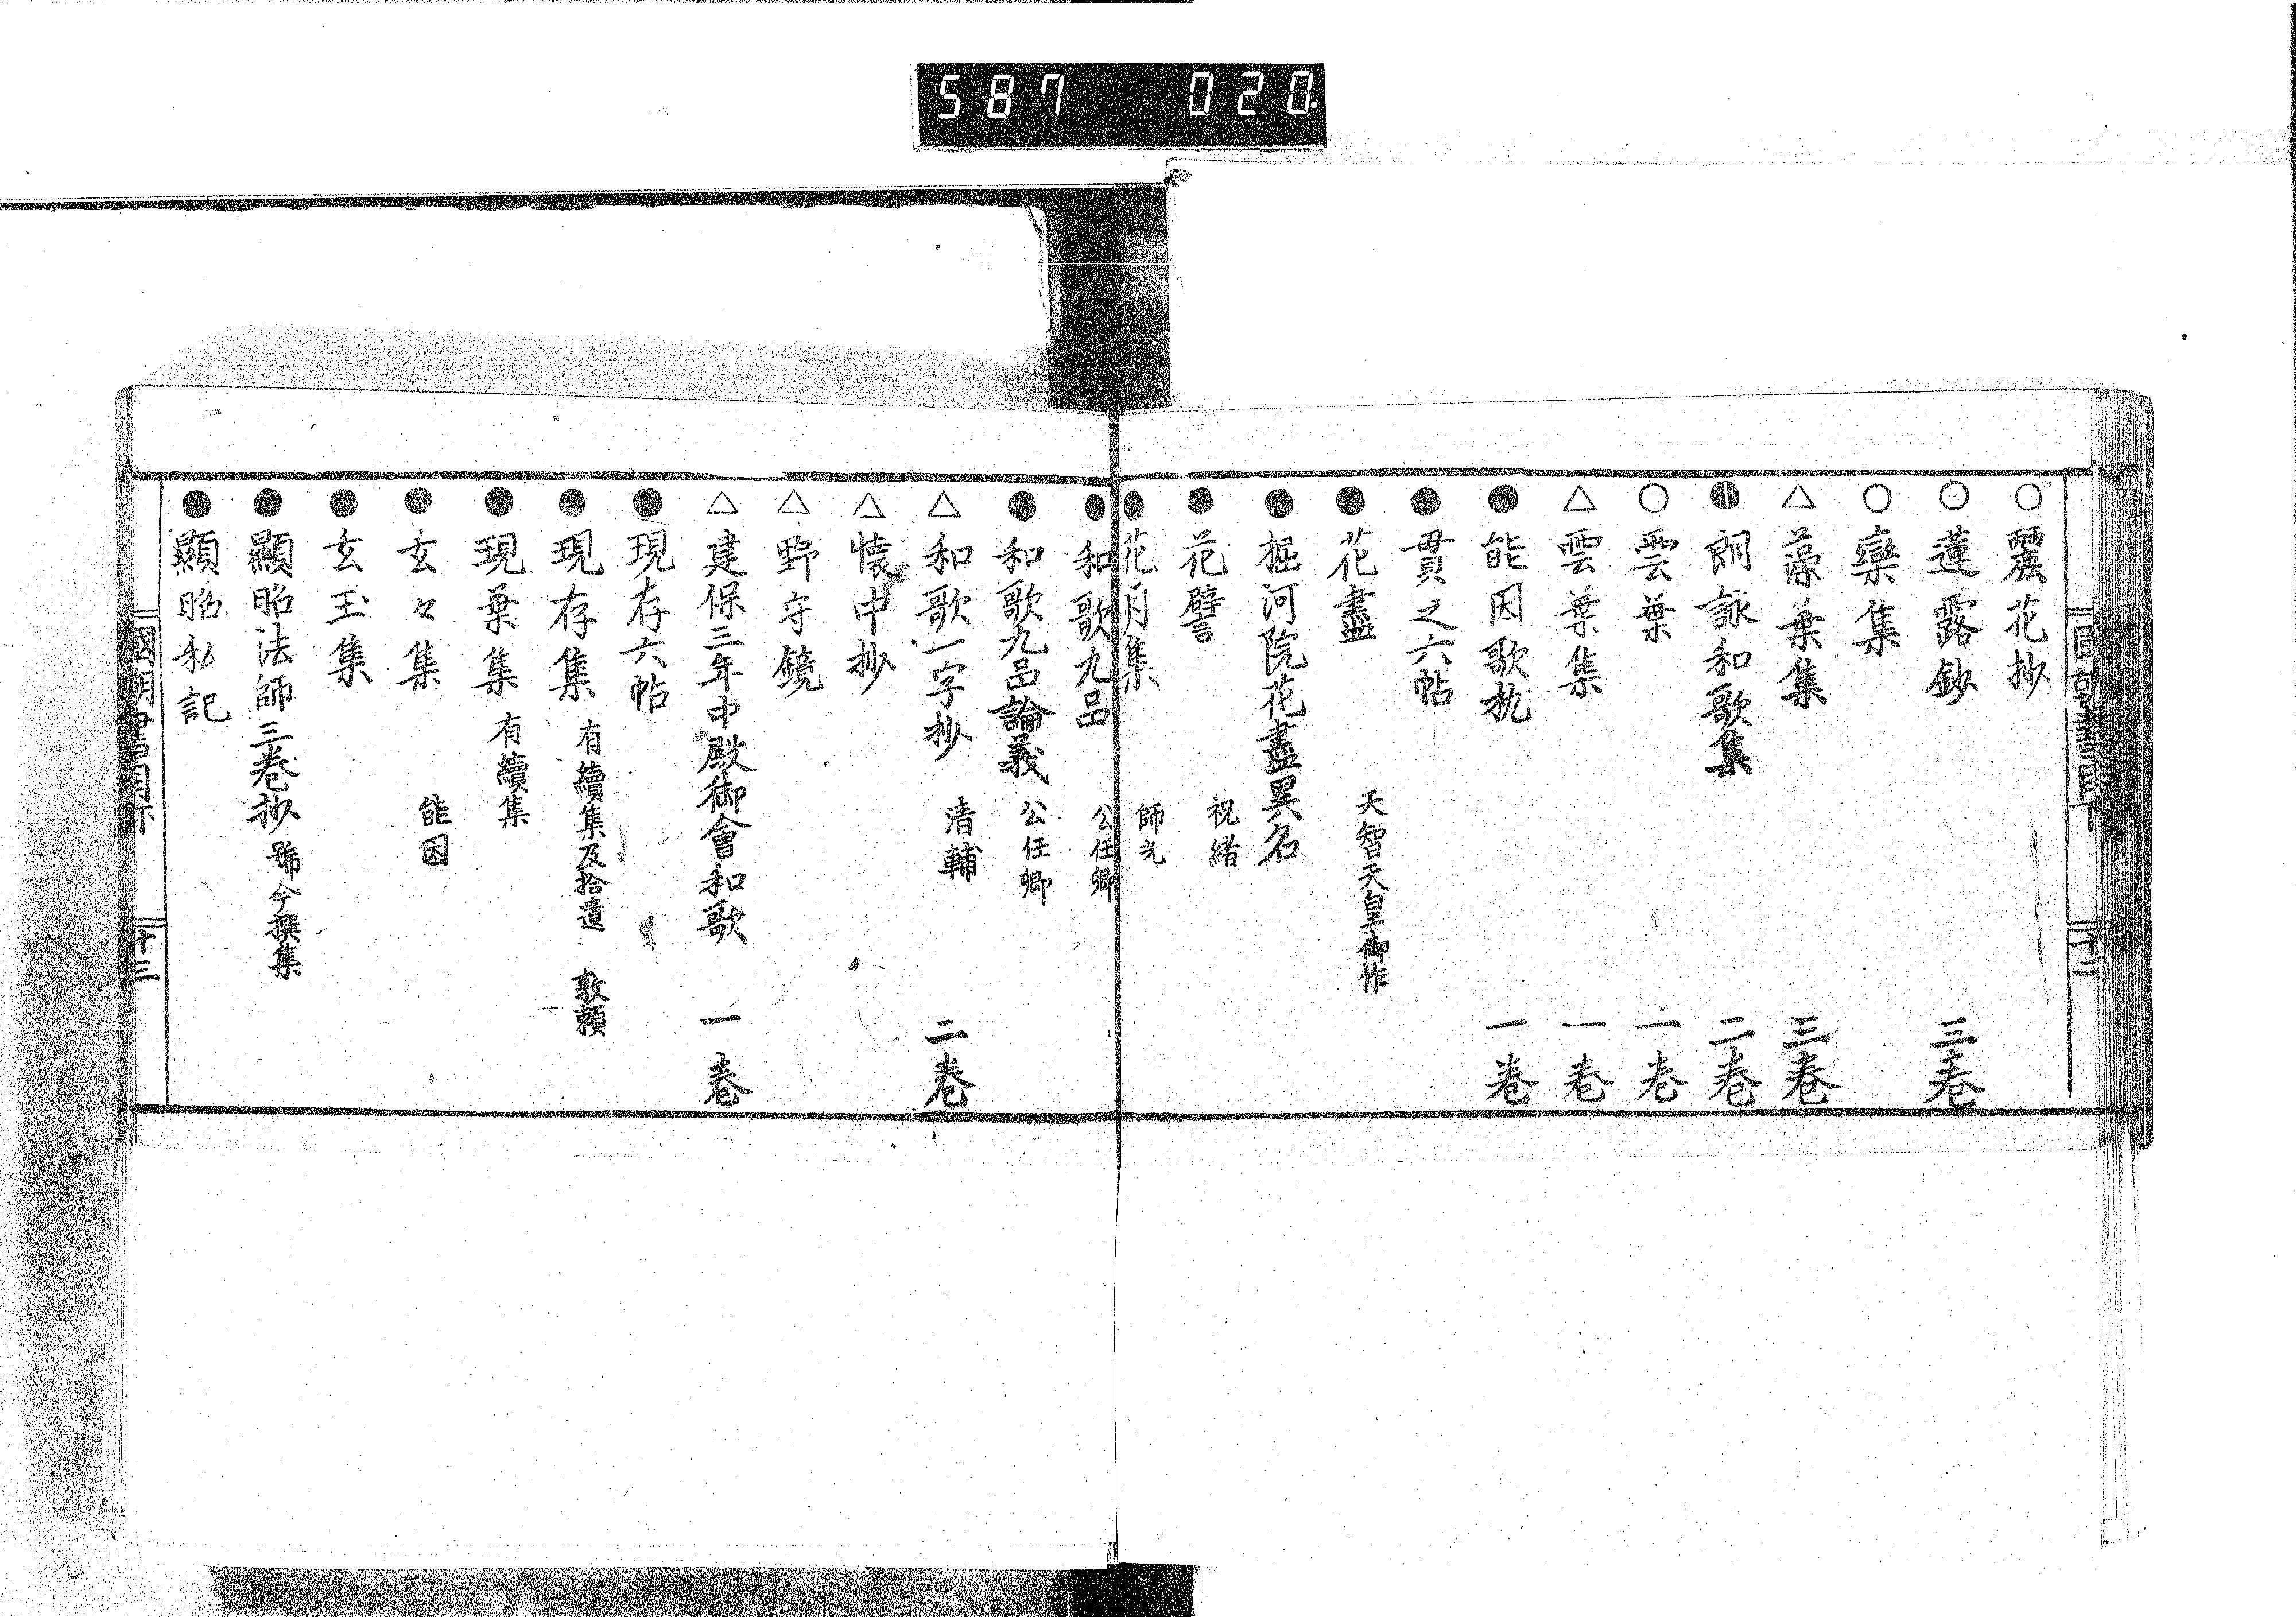 587 020
○麗花抄
○蓮露鈔 三巻
○欒集
△藻葉集 三巻
朗詠和歌集 二巻
○雲葉 一巻
△雲葉集 一巻
●能因歌枕 一巻
●貫之六帖
●花盡 天智天皇御作
●堀河院花盡異名
●花譬 祝緒
●花月集 師光
●和歌九品 公任卿
●和歌九品論義 公任卿
△和歌一字抄 清輔 二巻
△懐中抄
△野守鏡
△建保三年中殿御會和歌 一巻
●現存六帖
●現存集 有續集及拾遺 敦頼
●現葉集 有續集
●玄々集 能因
●玄玉集
●顯昭法師三巻抄 號今撰集
●顯昭私記
十三